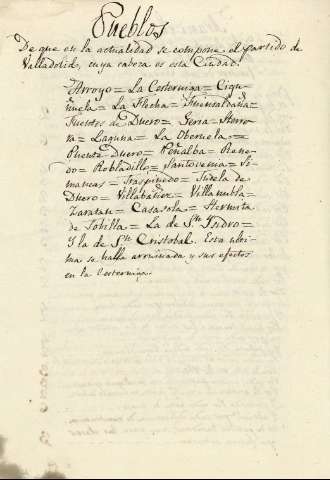 Pueblos
De que en la actualidad se compone el partido de
Valladolid, cuya cabeza es esta Ciudad.
Arroyo = La Cesterniga = Cigu-
ñuela = La Flecha = Fuensaldaña =
Fuentes de Duero = Geria = Herre-
ra = Laguna = La Oberuela =
Puente Duero = Peñalba = Rene-
do = Robladillo = Santovenia = Si-
mancas = Traspinedo = Tudela de
Duero = Villabañez = Villanubla =
Zaratan = Casasola = Hermita
de Tobilla = La de Sn. Isidro =
Y la de Sn. Cristobal. Esta ulti-
ma se halla arruinada y sus efectos
en la Cesterniga.